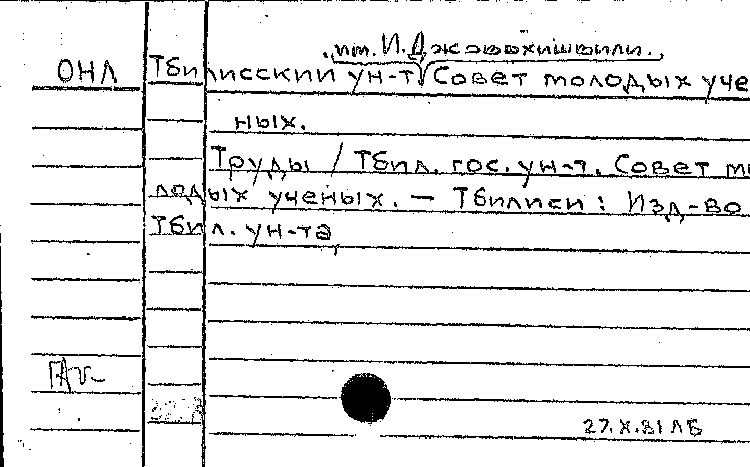 им. И. Джавахишвили.
ОНЛ Тбилисский ун-т Совет молодых уче
ных.
Труды / Тбил. гос. ун-т. Совет мо
лодых ученых. — Тбилиси : Изд-во
Тбил. ун-та,
27.X.81 ЛБ